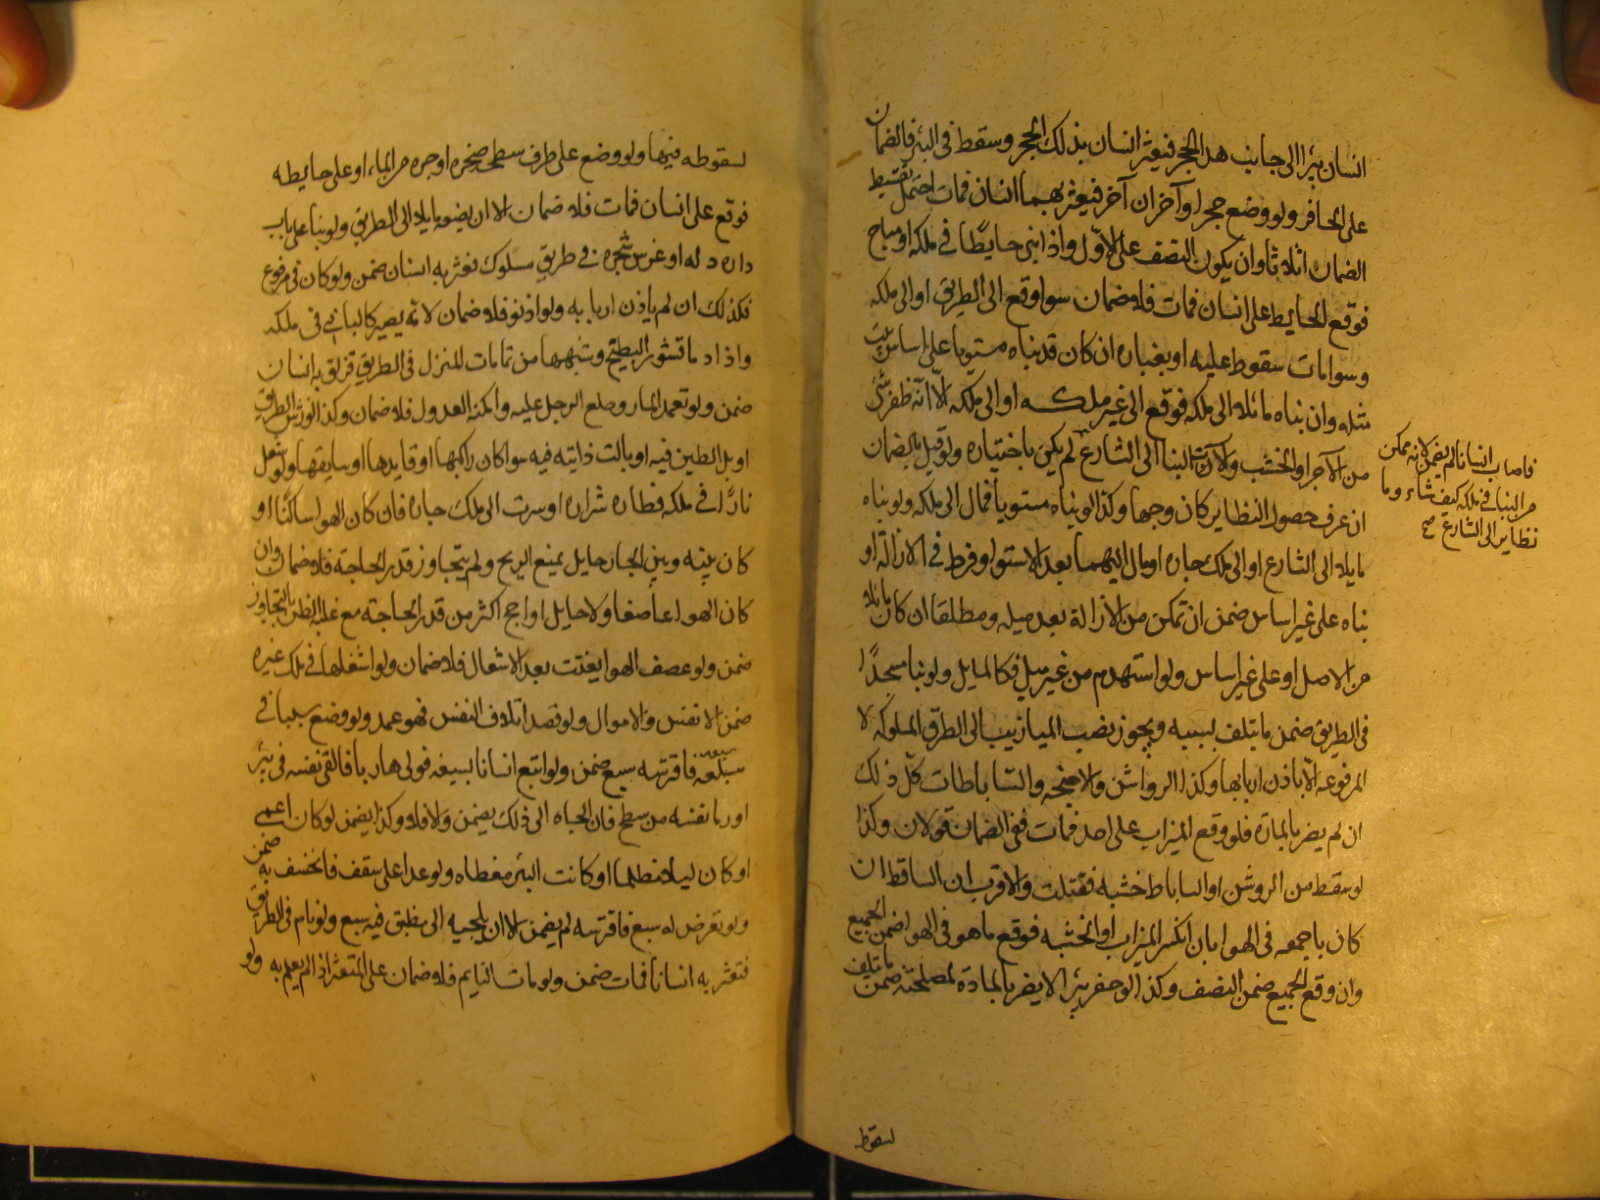 انسان بئرا الى جانب هذا الحجر فيعثر انسان بذلك الحجر وسقط فى البئر فالضمان
على الحافر ولو وضع حجرا وآخران آخر فيعثر بهما انسان فمات احتمل تقسيط
الضمان اثلاثا وان يكون النصف على الاول واذا بنى حايطا فى ملكه او مباح
فوقع الحايط على انسان فمات فلا ضمان سوا وقع الى الطريق او الى ملكه
وسوا مات بسقوط عليه او بغباره ان كان قد بناه مستويا على اساس يثبت
مثله وان بناه مائلا الى ملكه فوقع الى غير ملكه او الى ملكه الا انه ظفر شئ
من الآجر او الخشب وآلات البنا الى الشارع لم يكن باختياره ولو قيل بالضمان
ان عرف حصول التطاير كان وجها وكذا لو بناه مستويا فمال الى ملكه ولو بناه
مايلا الى الشارع او الى ملك جاره او مال اليهما بعد الاستوا وفرط فى الازالة او
بناه على غير اساس ضمن ان تمكن من الازالة بعد ميله ومطلقا ان كان مايلا
من الاصل او على غير اساس ولو استهدم من غير ميل فكالمايل ولو بنا مسجدا
فى الطريق ضمن ما يتلف بسببه ويجوز نصب الميازيب الى الطرق المسلوكه لا
المرفوعه الا باذن اربابها وكذا الرواشن والاجنحه والساباطات كل ذلك
ان لم يضر بالمارة فلو وقع الميزاب على احد فمات ففى الضمان قولان وكذا
لو سقط من الروشن او الساباط خشبه فقتلت والاقرب ان الساقط ان
كان باجمعه فى الهوا بان انكسر الميزاب او الخشبه فوقع ما هو فى الهوا ضمن الجميع
وان وقع الجميع ضمن النصف وكذا لو حفر بئرا لا يضر بالمادة لمصلحته ضمن ما يتلف
لسقوط
فاصاب انسانا لم يضمن لانه تمكن
من البنا فى ملكه كيف شاء وما
تطاير الى الشارع صح
لسقوطه فيها ولو وضع على طرف سطحه صخره او جره من الماء او على حايطه
فوقع على انسان فمات فلا ضمان الا ان يضعه مايلا الى الطريق ولو بنا على باب
داره دكه او غرس شجره فى طريق مسلوك فعثر به انسان ضمن ولو كان فى مرفوع
فكذلك ان لم ياذن اربابه ولو اذنو فلا ضمان لانه يصير كالبانى فى ملكه
واذا رما قشور البطيخ وشبهها من قمامات المنزل فى الطريق فزلق به انسان
ضمن ولو تعمد المار وضع الرجل عليه وامكنه العدول فلا ضمان وكذا لو رش الطريق
او بل الطين فيه او بالت دابته فيه سوا كان راكبها او قايدها او سايقها ولو شعل
نارا فى ملكه فطارة شراره او سرت الى ملك جاره فان كان الهوا ساكنا او
كان بينه وبين الجار حايل يمنع الريح ولم يتجاوز قدر الحاجة فلا ضمان وان
كان الهوا عاصفا ولا حايل او اجج اكثر من قدر الحاجة مع غلبة الظن بالتجاوز
ضمن ولو عصف الهوا بغتت بعد الاشعال فلا ضمان ولو اشعلها فى ملك غيره
ضمن الانفس والاموال ولو قصد اتلاف النفس فهو عمد ولو وضع صبيا فى
مسبعه فاقترسه سبع ضمن ولو اتبع انسانا بسيفه فولى هاربا فالقى نفسه فى بئر
او رما نفسه من سطح فان الجاه الى ذلك يضمن والا فلا وكذا يضمن لو كان اعمى
او كان ليلا مظلما او كانت البئر مغطاه ولو عدا على سقف فانخسف به ضمن
ولو تعرض له سبع فاقترسه لم يضمن الا ان يلجيه الى مضيق فيه سبع ولو نام فى الطريق
فتعثر به انسانا فمات ضمن ولو مات النايم فلا ضمان على المتعثر اذا لم يعلم به ولو